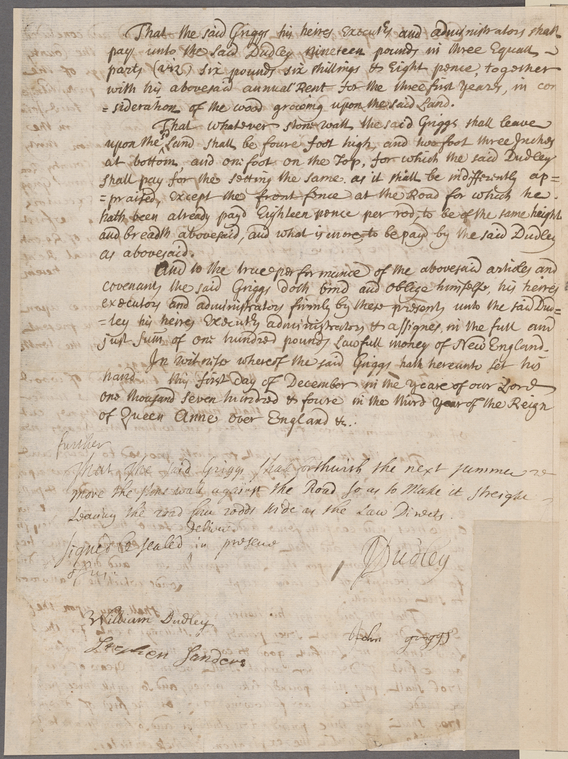 That the said Griggs his heires Execut:rs and administrators shall
pay unto the said Dudley nineteen pounds in three Equall
parts (viz) six pounds six shillings & Eight pence, together
with his abovesaid annual Rent for the three first Years, in con
=sideration of the wood growing upon the said Land.
That whatever stone wall the said Griggs shall leave
upon the Land shall be foure foot high, and two foot three Inches
at bottom and one foot on the Top, for which the said Dudley
shall pay for the setting the same, as it shall be indifferently ap=
=praised, except the front fence at the Road for which he
hath been already payd Eighteen pence per rod, to be of the same height
and breadth abovesaid, and what is more to be payd by the said Dudley
as abovesaid.
And to the true performance of the abovesaid articles and
covenants the said Griggs doth bind and oblige himselfe, his heires
executors and administrators firmly by these presents unto the said Dud=
=ley his heires Execut:rs administrators & assignes, in the full and
just summ of one hundred pounds Lawfull money of New England.
In witness whereof the said Griggs hath hereunto set his
hand this first day of December in the Yeare of our Lord
one thousand seven hundred & foure in the third Year of the Reign
of Queen Anne over England &c.
Further
That the said Griggs shall forthwith the next summer re
move the stone wall against the Road so as to make it streight
Leaving the road four rodds wide as the Law Directs.
Signed & sealed in presence
of us
Dudley
William Dudley
John griggs
Stephen Sanders